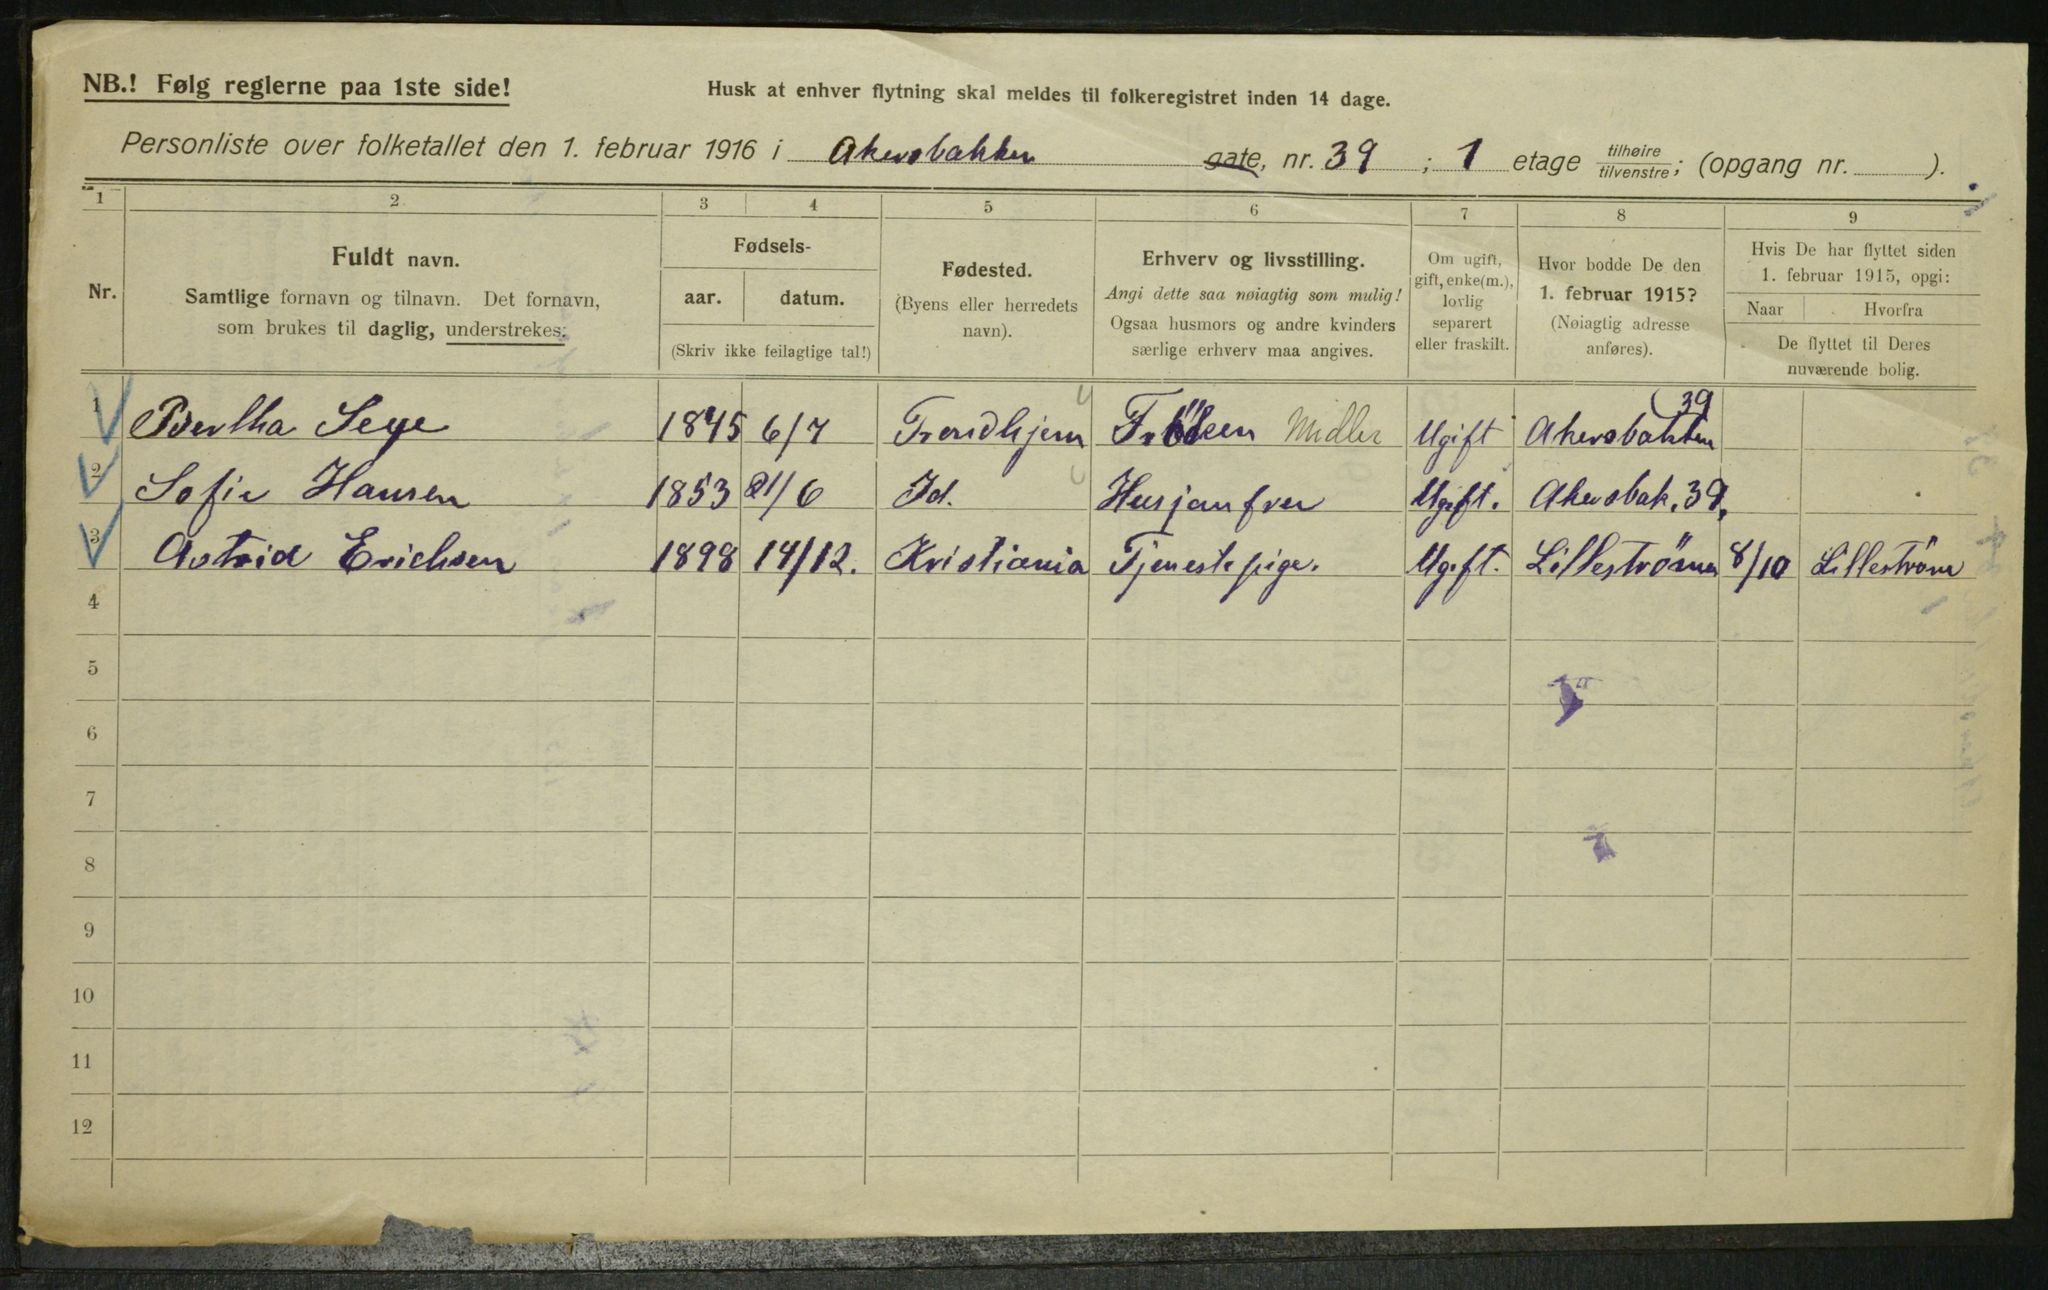 NB.! Følg reglerne paa 1ste side!
Husk at enhver flytning skal meldes til folkeregistret inden 14 dage.
Personliste over folketallet den 1. februar 1916 i Akersbakken gate, nr. 39 ; 1 etage tilhøire tilvenstre ; (opgang nr. ).
1 2 3 4 5 6 7 8 9
Nr.
Fuldt navn.
Samtlige fornavn og tilnavn. Det fornavn,
som brukes til daglig, understrekes:
Fødsels-
aar. datum.
(Skriv ikke feilagtige tal!)
Fødested.
(Byens eller herredets
navn).
Erhverv og livsstilling.
Angi dette saa nøiagtig som mulig!
Ogsaa husmors og andre kvinders
særlige erhverv maa angives.
Om ugift,
gift, enke(m.),
lovlig
separert
eller fraskilt.
Hvor bodde De den
1. februar 1915?
(Nøiagtig adresse
anføres).
Hvis De har flyttet siden
1. februar 1915, opgi:
Naar Hvorfra
De flyttet til Deres
nuværende bolig.
1 Bertha Seye 1845 6/7 Trondhjem Fröken Midler Ugift Akersbakken 39
2 Sofie Hansen 1853 21/6 Id. Husjomfru Ugift. Akersbak. 39,
3 Astrid Erichsen 1898 14/12. Kristiania Tjenestepige. Ugift. Lilleströmen 8/10 Lilleström
4
5
6
7
8
9
10
11
12